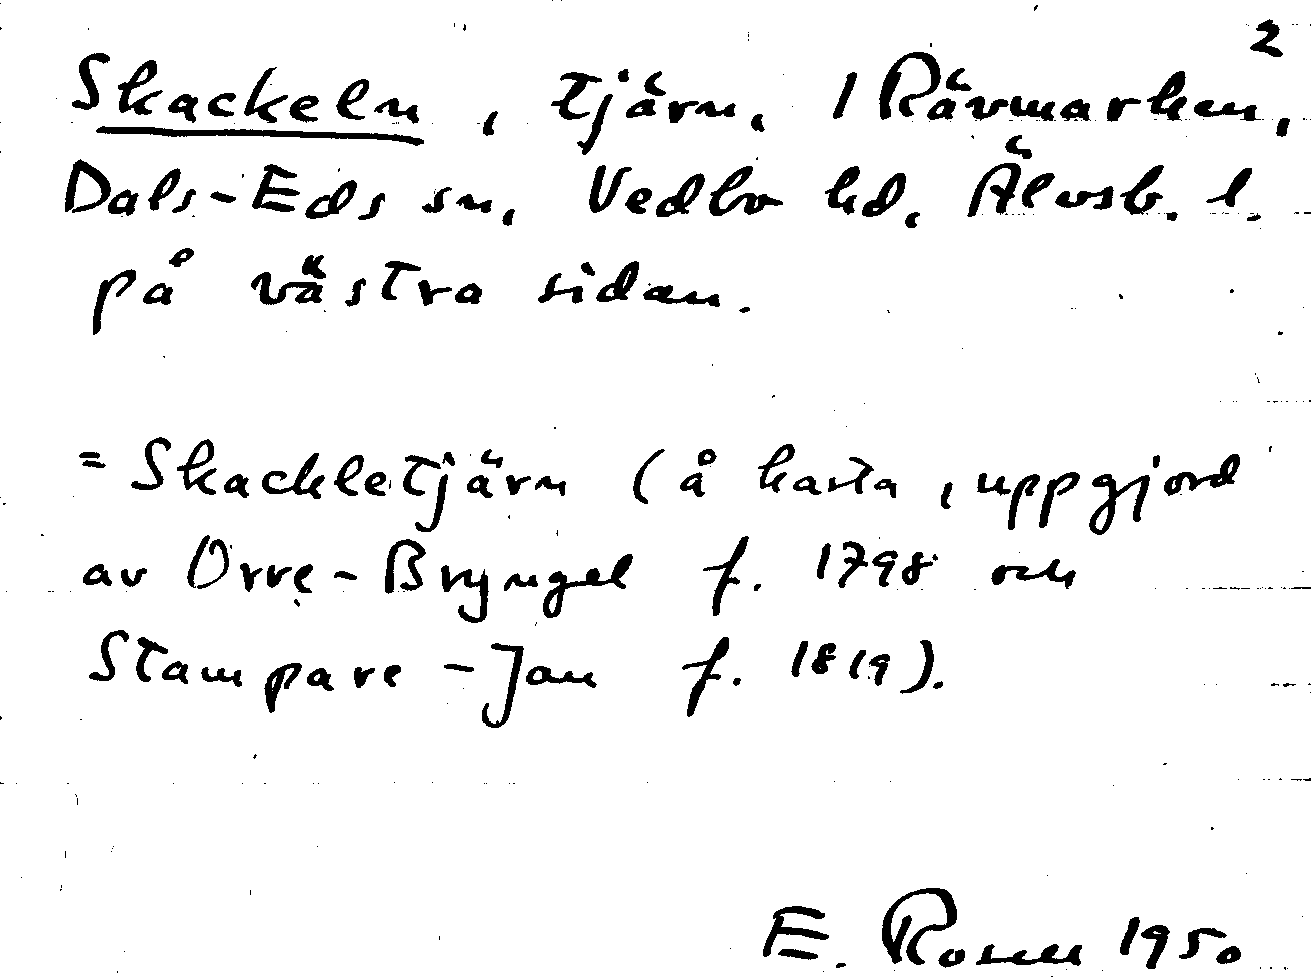 2
Skackeln, tjärn, 1 Rävmarken,
Dals-Eds sn, Vedbo hd, Älvsb. l.
på västra sidan.
= Skackletjärn (å karta, uppgjord
av Orre-Bryngel f. 1798 och
Stampare-Jan f. 1819).
E. Rosell 1950